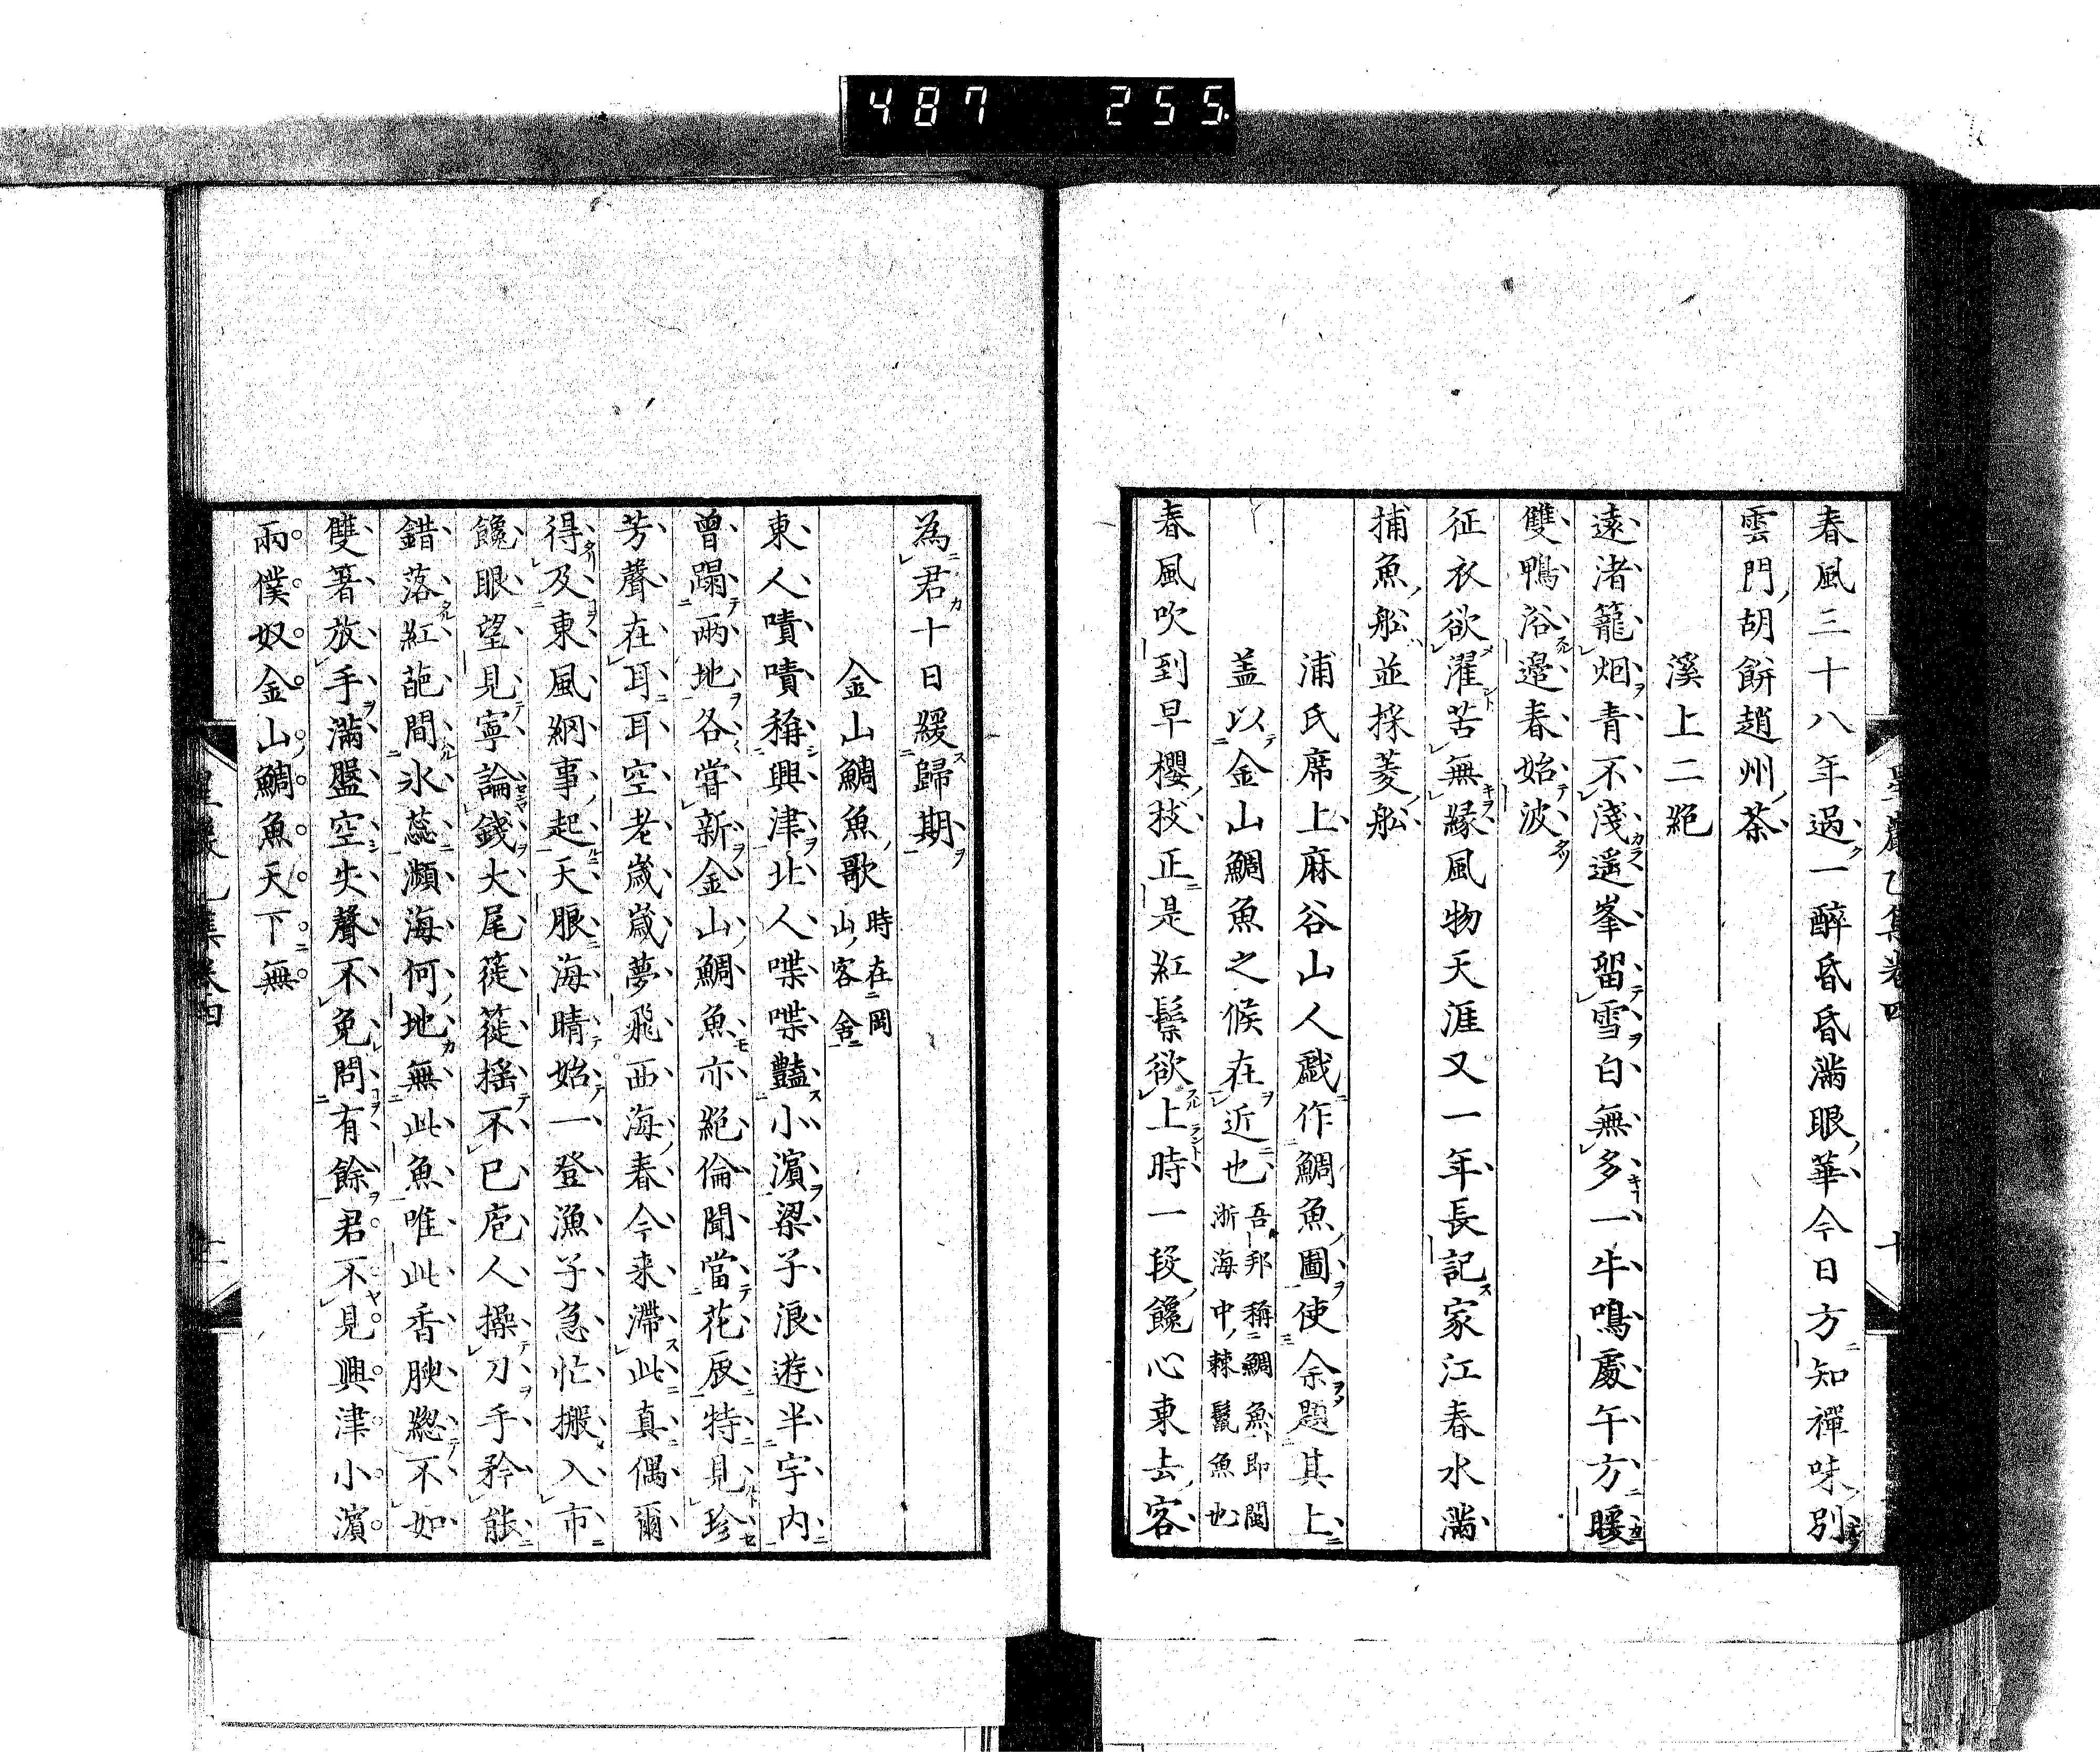 487 255
春風三十八年過一醉昏昏滿眼華今日方知禪味別
雲門胡餅趙州茶
溪上二絕
遠渚籠烟青不淺遥峯留雪白無多一牛鳴處午方暖
雙鴨浴邊春始波
征衣欲濯苦無緣風物天涯又一年長記家江春水滿
捕魚舩並採菱舩
浦氏席上麻谷山人戲作鯛魚圖使余題其上
盖以金山鯛魚之候在近也吾邦稱鯛魚即閩浙海中棘鬣魚也
春風吹到早櫻枝正是紅鬃欲上時一段饞心東去客
為君十日緩歸期
金山鯛魚歌時在岡山客舍
東人嘖嘖稱興津北人喋喋豔小濱梁子浪遊半宇内
曾蹋兩地各嘗新金山鯛魚亦絕倫聞當花辰特見珍
芳聲在耳耳空老歲歲夢飛西海春今来滯此真偶爾
得及東風網事起天脹海晴始一登漁子急忙搬入市
饞眼望見寧論錢大尾簁簁搖不已庖人操刀手矜能
錯落紅葩間氷蕊瀕海何地無此魚唯此香腴總不如
雙箸放手滿盤空失聲不免問有餘君不見興津小濱
兩僕奴金山鯛魚天下無